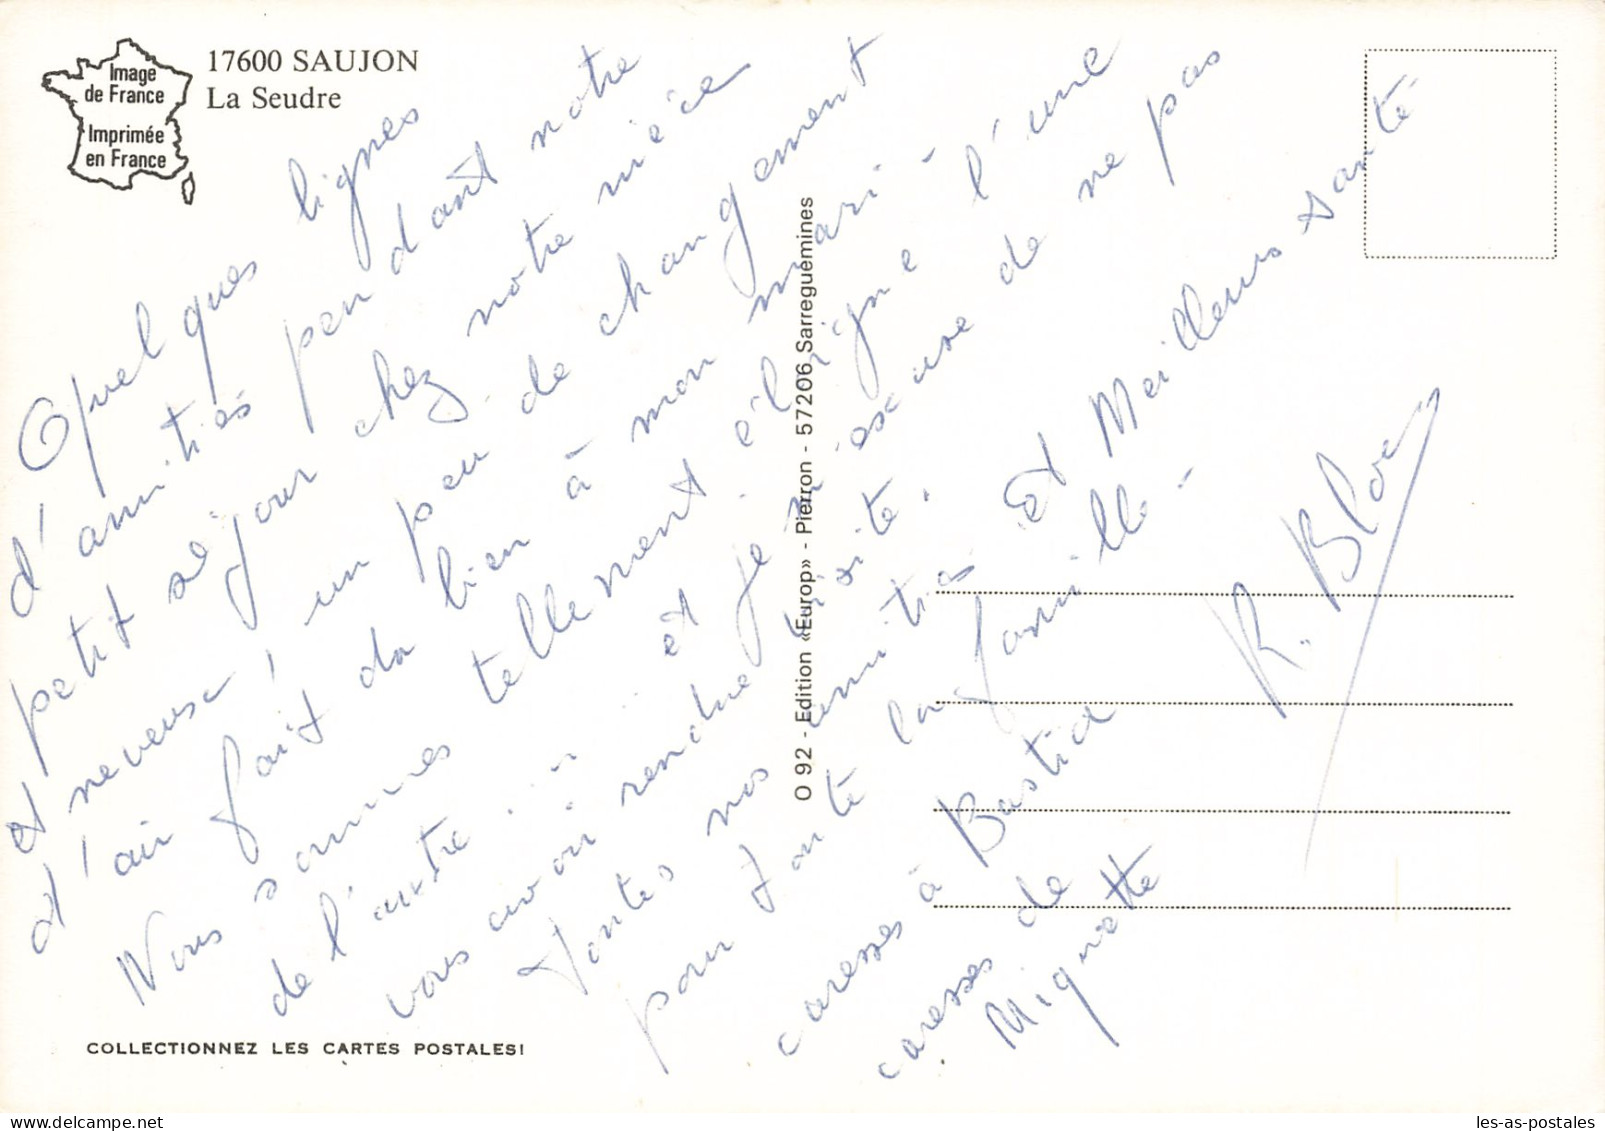 17600 SAUJON
La Seudre
Image
de France
Imprimée
en France
Quelques lignes
d'amitiés pendant notre
petit séjour chez notre nièce
et neveuse! un peu de changement
d'air fait du bien à mon mari -
Nous sommes tellement éloigné l'une
de l'autre ... et je m'excuse de ne pas
vous avoir rendue visite.
Toutes nos amitiés et Meilleurs santé
pour toute la famille -
caresses à Bastia
caresses de
Miquette
R. Bloc
O 92 - Edition «Europ» - Pierron - 57206 Sarreguemines
COLLECTIONNEZ LES CARTES POSTALES!
les-as-postales.com